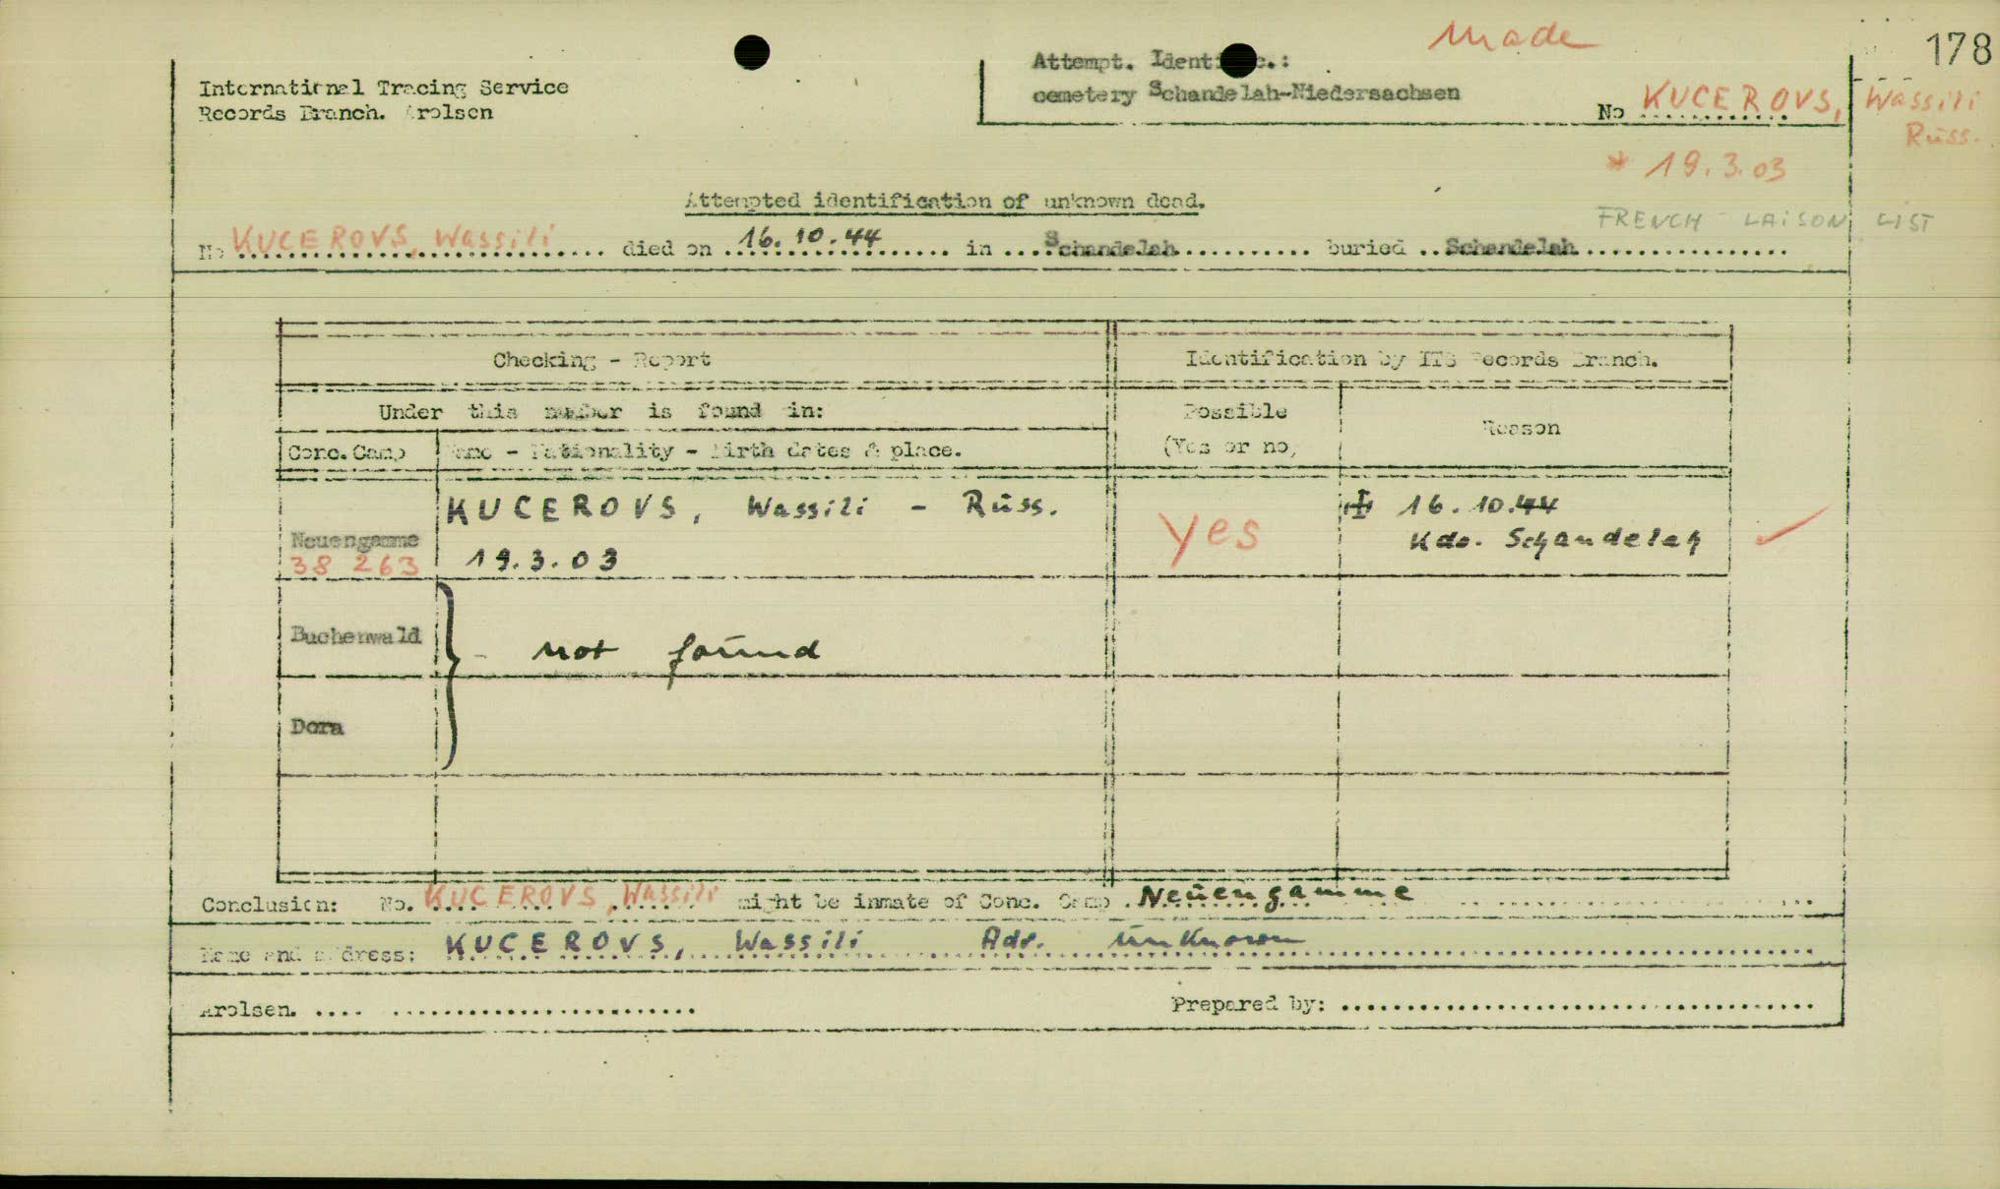 made
178
International Tracing Service
Records Branch. Arolsen
Attempt. Identific.:
cemetery Schandelah-Niedersachsen
No KUCEROVS, Wassili
Russ.
* 19.3.03
Attempted identification of unknown dead.
FRENCH - LAISON LIST
No KUCEROVS, Wassili died on 16.10.44 in Schandelah buried Schandelah
Checking - Report
Identification by ITS Records Branch.
Under this number is found in:
Possible
(Yes or no)
Reason
Conc. Camp
Name - Nationality - Birth dates & place.
Neuengamme
38 263
KUCEROVS, Wassili - Russ.
19.3.03
Yes
16.10.44
Kdo. Schandelah
Buchenwald
- not found
Dora
Conclusion: No. KUCEROVS, Wassili might be inmate of Conc. Camp Neuengamme
Name and address: KUCEROVS, Wassili Adr. unknown
Arolsen.
Prepared by: